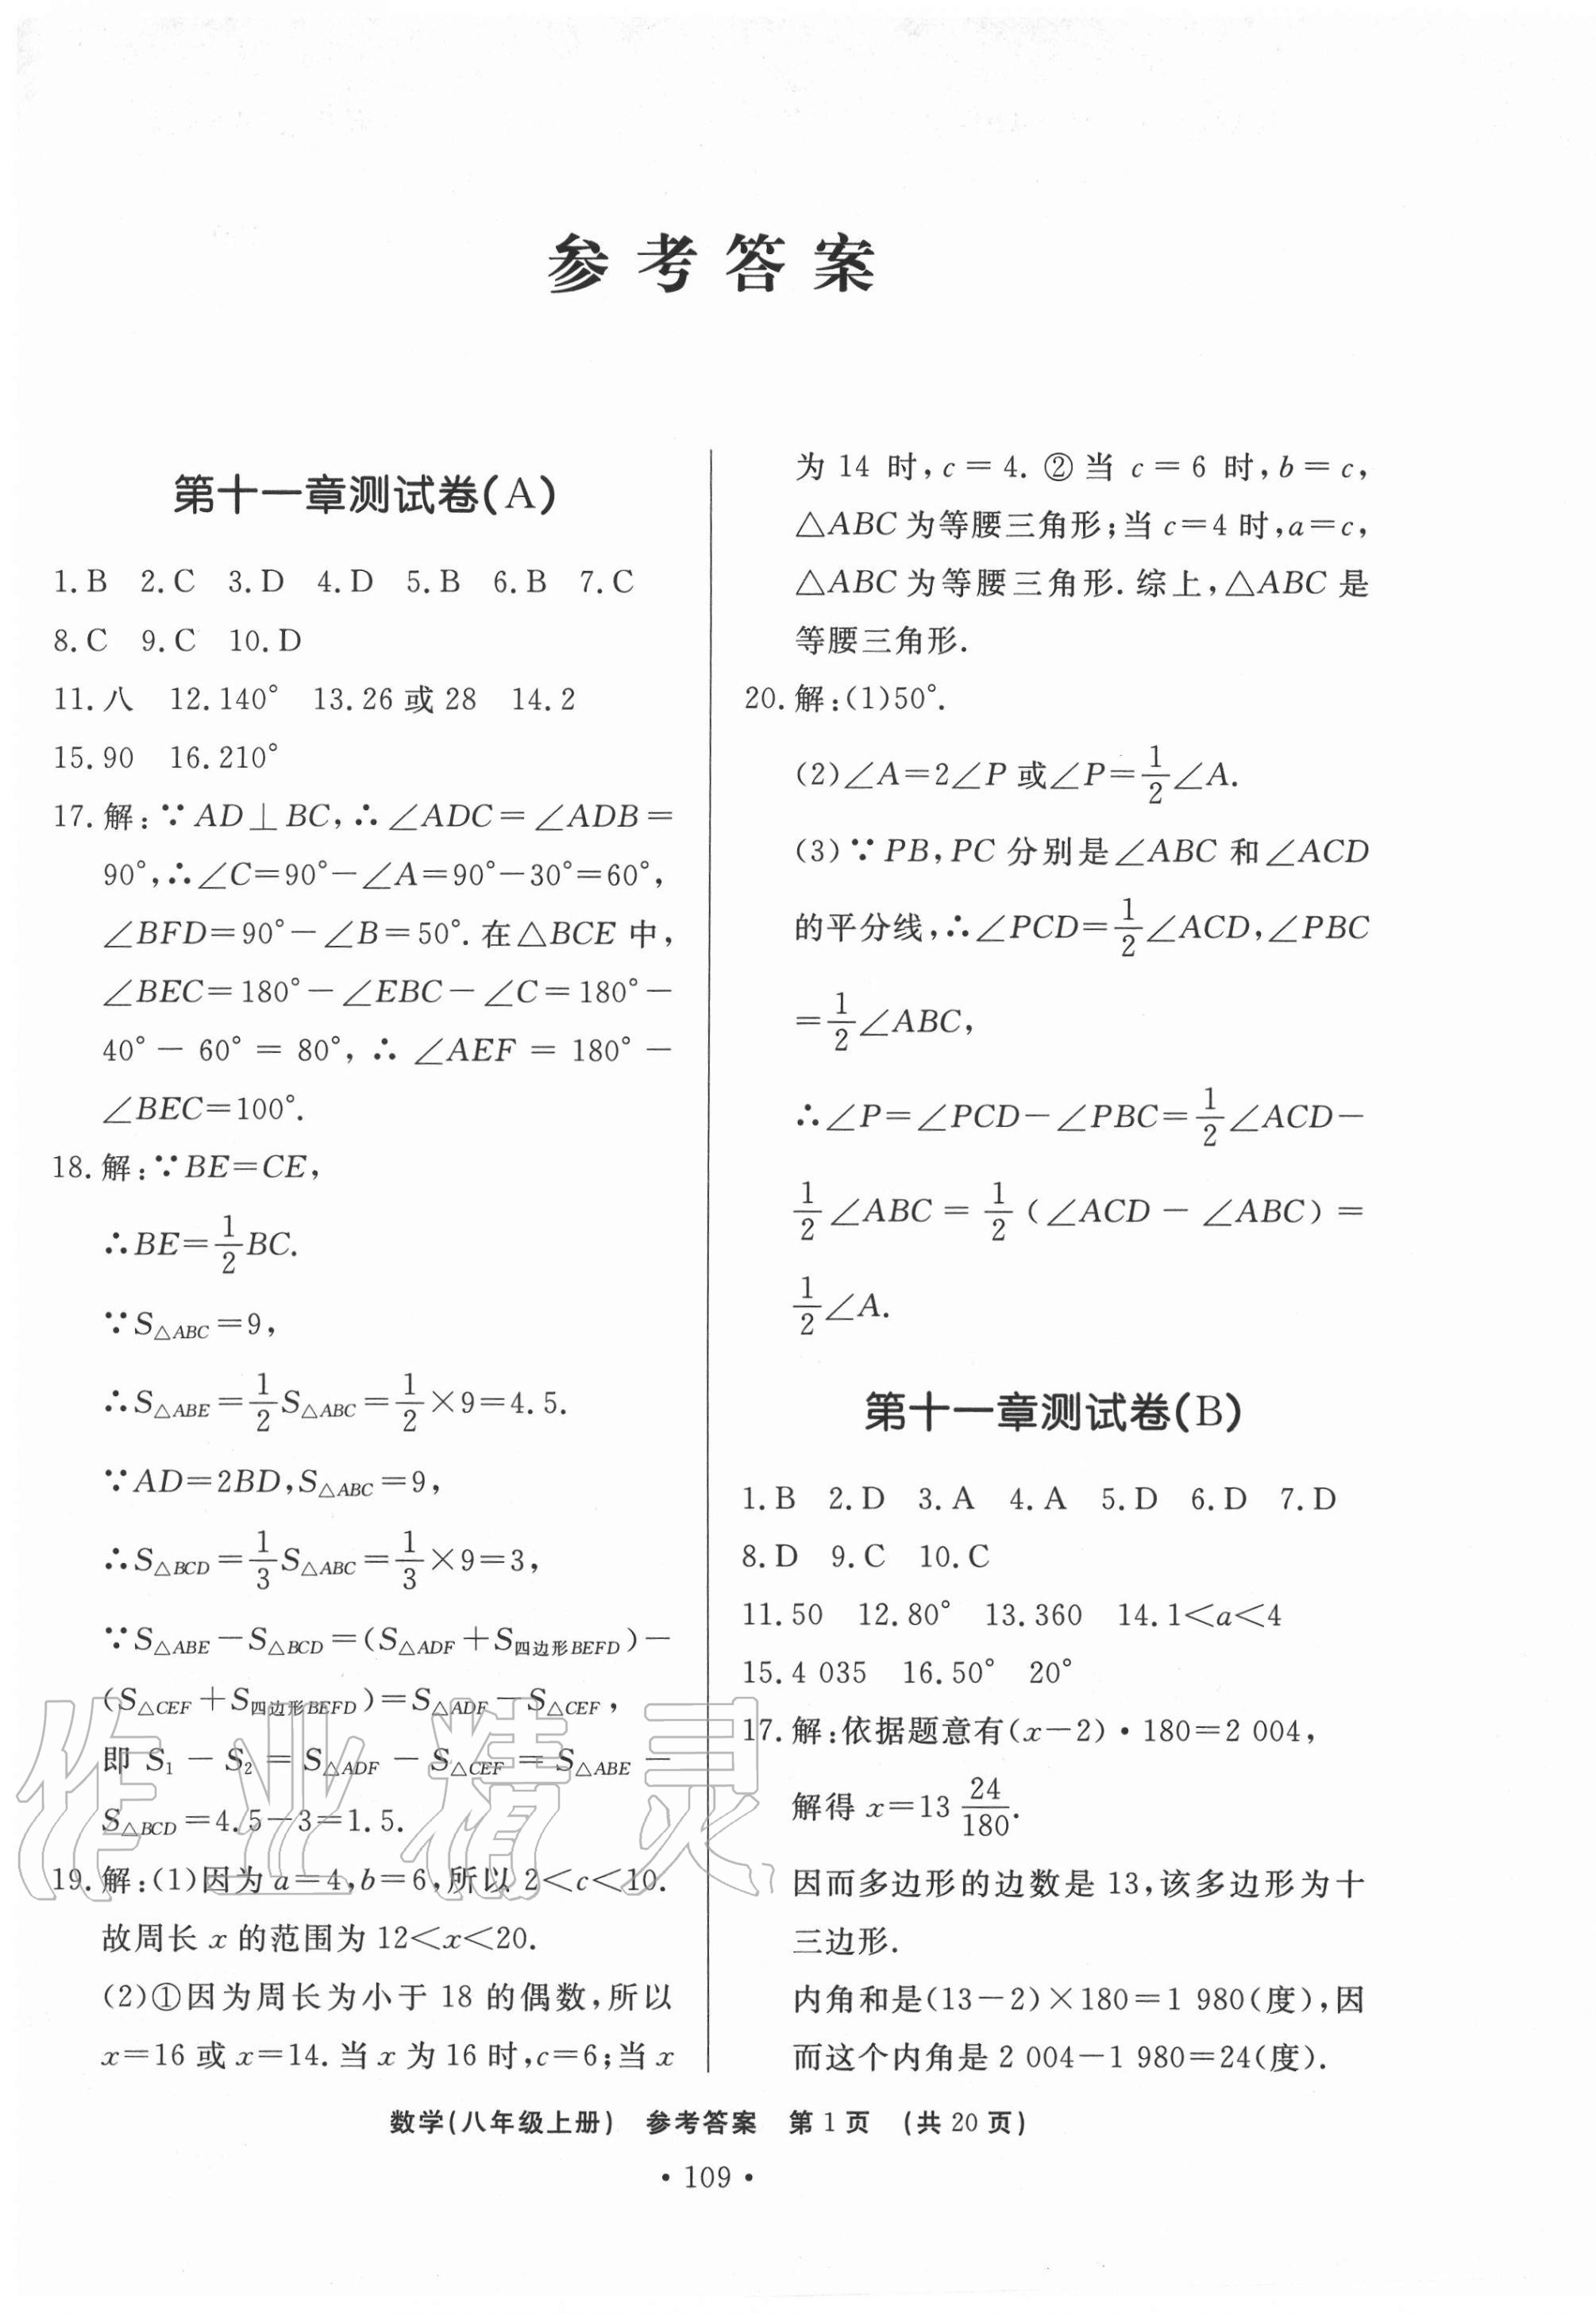 参考答案
第十一章测试卷(A)
1.B 2.C 3.D 4.D 5.B 6.B 7.C
8.C 9.C 10.D
11.八 12.140° 13.26或28 14.2
15.90 16.210°
17.解:∵AD⊥BC,∴∠ADC=∠ADB=
90°,∴∠C=90°-∠A=90°-30°=60°,
∠BFD=90°-∠B=50°.在△BCE中,
∠BEC=180°-∠EBC-∠C=180°-
40°-60°=80°,∴∠AEF=180°-
∠BEC=100°.
18.解:∵BE=CE,
∴BE=1/2BC.
∵S△ABC=9,
∴S△ABE=1/2S△ABC=1/2×9=4.5.
∵AD=2BD,S△ABC=9,
∴S△BCD=1/3S△ABC=1/3×9=3,
∵S△ABE-S△BCD=(S△ADF+S四边形BEFD)-
(S△CEF+S四边形BEFD)=S△ADF-S△CEF,
即S₁-S₂=S△ADF-S△CEF=S△ABE-
S△BCD=4.5-3=1.5.
19.解:(1)因为a=4,b=6,所以2<c<10.
故周长x的范围为12<x<20.
(2)①因为周长为小于18的偶数,所以
x=16或x=14.当x为16时,c=6;当x
为14时,c=4.②当c=6时,b=c,
△ABC为等腰三角形;当c=4时,a=c,
△ABC为等腰三角形.综上,△ABC是
等腰三角形.
20.解:(1)50°.
(2)∠A=2∠P或∠P=1/2∠A.
(3)∵PB,PC分别是∠ABC和∠ACD
的平分线,∴∠PCD=1/2∠ACD,∠PBC
=1/2∠ABC,
∴∠P=∠PCD-∠PBC=1/2∠ACD-
1/2∠ABC=1/2(∠ACD-∠ABC)=
1/2∠A.
第十一章测试卷(B)
1.B 2.D 3.A 4.A 5.D 6.D 7.D
8.D 9.C 10.C
11.50 12.80° 13.360 14.1<a<4
15.4 035 16.50° 20°
17.解:依据题意有(x-2)·180=2 004,
解得x=13 24/180.
因而多边形的边数是13,该多边形为十
三边形.
内角和是(13-2)×180=1 980(度),因
而这个内角是2 004-1 980=24(度).
数学(八年级上册) 参考答案 第1页 (共20页)
·109·
作业精灵